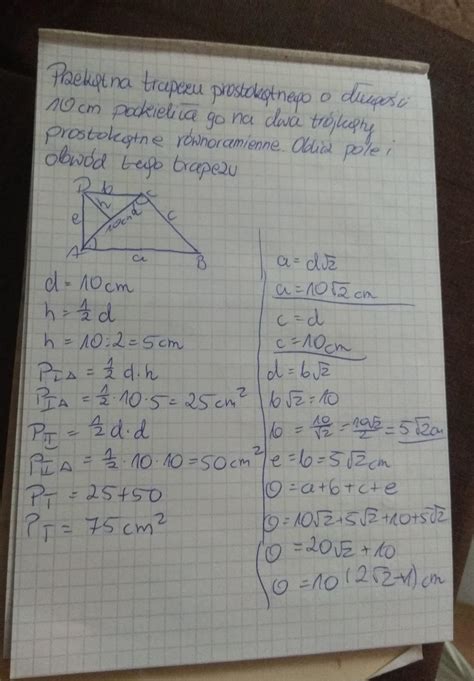 Przekątna trapezu prostokątnego o długości
10cm podzieliła go na dwa trójkąty
prostokątne równoramienne. Oblicz pole i
obwód tego trapezu
D b C
h
e 10cm d c
A a B
d = 10cm
h = 1/2 d
h = 10:2 = 5cm
P_I△ = 1/2 d·h
P_I△ = 1/2·10·5 = 25cm²
P_II = 1/2 d·d
P_II△ = 1/2·10·10 = 50cm²
P_T = 25+50
P_T = 75cm²
a = d√2
a = 10√2cm
c = d
c = 10cm
d = b√2
b√2 = 10
b = 10/√2 = 10√2/2 = 5√2cm
e = b = 5√2cm
O = a+b+c+e
O = 10√2+5√2+10+5√2
O = 20√2+10
O = 10(2√2+1)cm